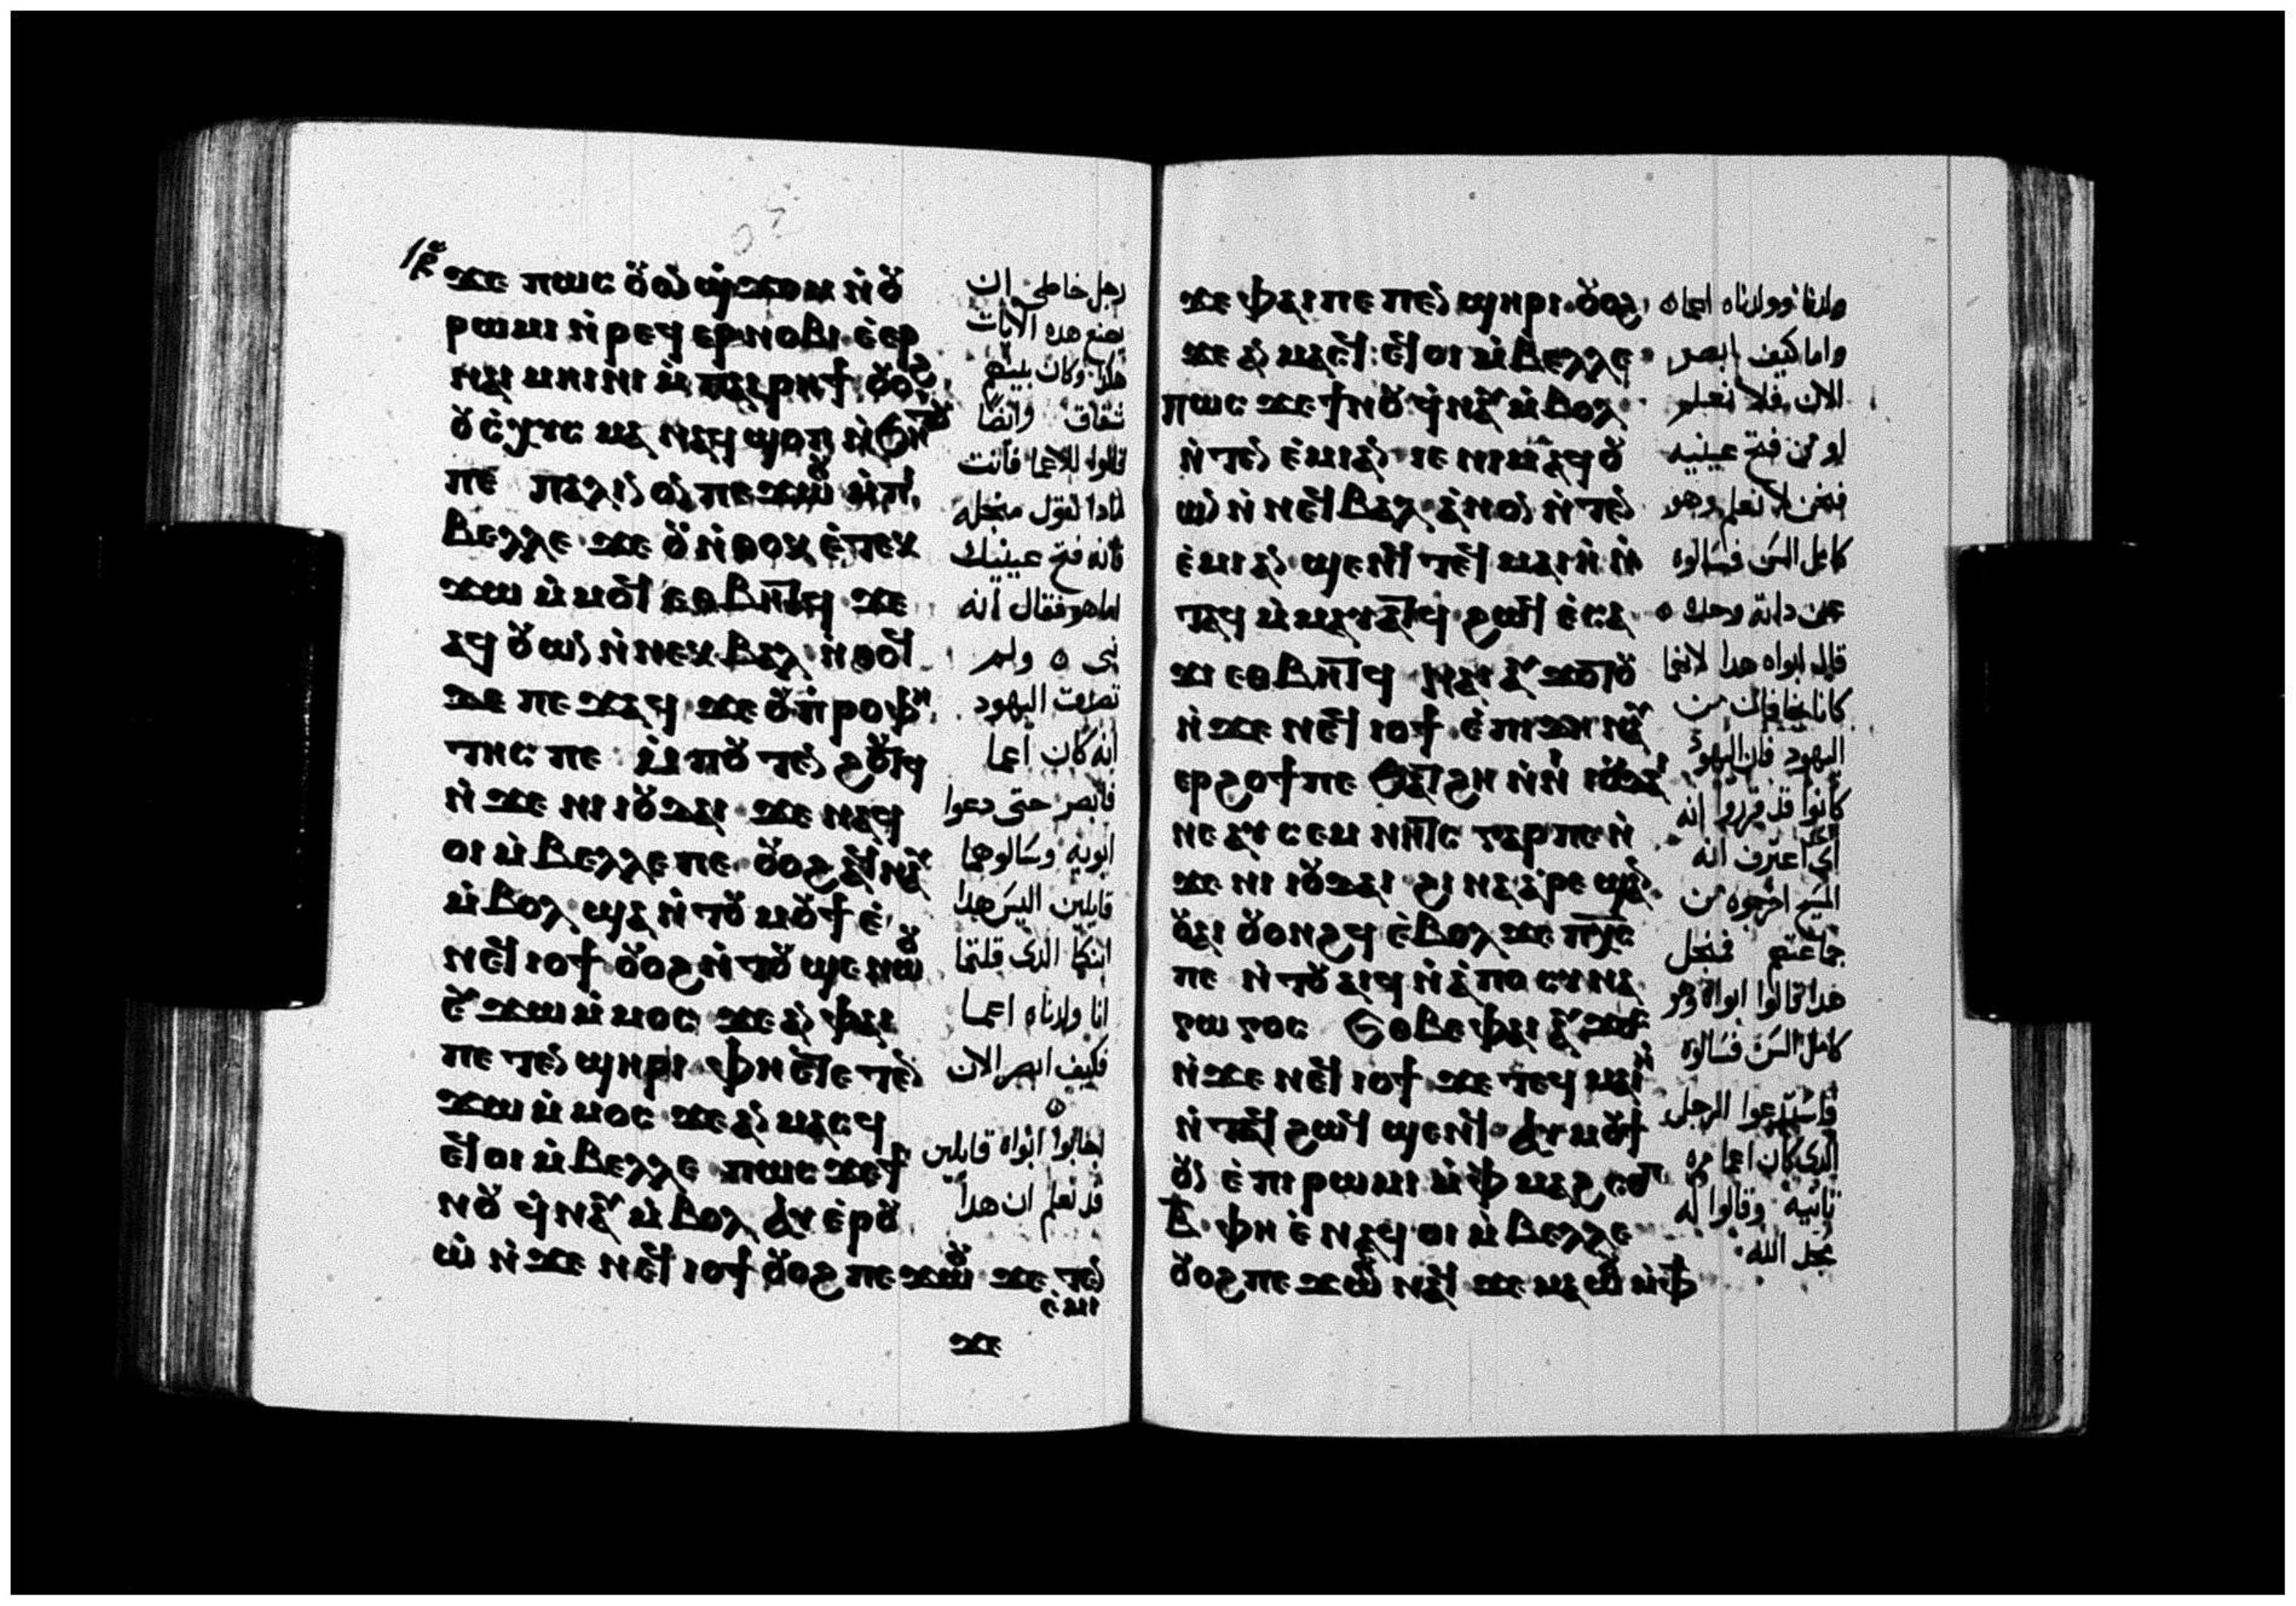 ϫⲉ ⲡⲱⲥ ⲟⲩⲟⲛ ϣϫⲟⲙ ⲛⲟⲩ
ⲣⲱⲙⲓ ⲛⲣⲉϥ ⲉⲣⲛⲟⲃⲓ ⲉⲉⲣ
ⲛⲁⲓ ⲙⲏⲓⲛⲓ ⲙⲡⲁⲓⲣⲏϯ ⲟⲩⲟϩ
ⲟⲩⲥⲭⲓⲥⲙⲁ ⲛⲁϥϣⲟⲡ ⲛϧⲏⲧⲟⲩ
ⲡⲉ ⲡⲁⲗⲓⲛ ⲟⲛ ⲡⲉϫⲱⲟⲩ ⲙⲡⲓ
ⲃⲉⲗⲗⲉ ϫⲉ ⲟⲩ ⲛⲑⲟⲕ ⲉⲧⲉⲕ
ϫⲱ ⲙⲙⲟⲥ ⲉⲑⲃⲏⲧϥ ϫⲉ
ⲁϥⲟⲩⲱⲛ ⲛⲛⲉⲕⲃⲁⲗ ⲛⲑⲟϥ
ⲇⲉ ⲡⲉϫⲁϥ ϫⲉ ⲟⲩⲡⲣⲟⲫⲏ
ⲧⲏⲥ ⲡⲉ ⲙⲡⲟⲩⲧⲉⲛϩⲟⲩⲧϥ
ⲛϫⲉ ⲛⲓⲓⲟⲩⲇⲁⲓ ϫⲉ ⲛⲁϥ
ⲟⲓ ⲙⲃⲉⲗⲗⲉ ⲡⲉ ⲟⲩⲟϩ ⲁϥⲛⲁⲩ
ⲙⲃⲟⲗ ϣⲁⲛⲧⲟⲩⲙⲟⲩϯ ⲉ
ⲛⲉϥⲓⲟϯ ⲟⲩⲟϩ ⲛⲧⲟⲩϣⲉⲛⲱⲟⲩ
ⲉⲩϫⲱ ⲙⲙⲟⲥ ϫⲉ ⲁⲛ ⲫⲁⲓ
ⲡⲉ ⲡⲉⲧⲉⲛϣⲏⲣⲓ ⲫⲏ ⲉⲧⲉⲧⲉⲛ
ϫⲱ ⲙⲙⲟⲥ ϫⲉ ⲁⲩⲙⲁⲥϥ
ⲉϥⲟⲓ ⲙⲃⲉⲗⲗⲉ ⲡⲱⲥ ϫⲉ ϯ
ⲛⲟⲩ ϥⲛⲁⲩ ⲙⲃⲟⲗ ⲁⲩⲉⲣⲟⲩ
ⲱ ⲛϫⲉ ⲛⲉϥⲓⲟϯ ⲟⲩⲟϩ ⲡⲉϫⲱⲟⲩ ϫⲉ ⲧⲉⲛ
ⲉⲙⲓ
ϫⲉ
رجل خاطي ان
يصنع هده الايات
هكدا وكان بينهم
شقاق وايضًا
قالوا للاعما فانت
لمادا تقول منجله
فانه فتح عينيك
اما هو فقال انه
نبي ولم
تصدقت اليهود
انه كان اعما
فابصر حتى دعوا
ابويه وسالوهما
قايلين اليس هدا
ابنكما الدى قلتما
انا ولدناه اعما
فكيف ابصر الان
اجابوا ابواه قايلين
قد نعلم ان هدا
ϫⲉ ⲫⲁⲓ ⲡⲉ ⲡⲉⲛϣⲏⲣⲓ ⲟⲩⲟϩ
ϫⲉ ⲁⲛⲙⲁⲥϥ ⲉϥⲟⲓ ⲙⲃⲉⲗⲗⲉ
ⲡⲱⲥ ϫⲉ ϯⲛⲟⲩ ϥⲛⲁⲩ ⲙⲃⲟⲗ
ⲛⲧⲉⲛⲉⲙⲓ ⲁⲛ ⲓⲉ ⲛⲓⲙ ⲁϥⲟⲩ
ⲱⲛ ⲛⲛⲉϥⲃⲁⲗ ⲁⲛⲟⲛ ⲛⲧⲉⲛ
ⲉⲙⲓ ⲁⲛ ϣⲉⲛϥ ⲧⲉϥⲙⲁⲓⲏ ⲛ
ⲧⲁϥ ⲙⲙⲁⲩⲁⲧϥ ϩⲱϥ ⲉⲥⲁ
ϫⲓ ⲉⲑⲃⲏⲧϥ ⲛⲁⲓ ⲁⲩϫⲟⲧⲟⲩ
ⲛϫⲉ ⲛⲉϥⲓⲟϯ ⲉⲡⲓϫⲏ ⲛⲁⲩ
ⲉⲣϩⲟϯ ⲡⲉ ϧⲁⲧϩⲏ ⲛⲛⲓⲓⲟⲩⲇⲁⲓ
ⲛⲉ ⲁⲩⲥⲉⲙⲛⲏⲧⲥ ⲅⲁⲣ ⲡⲉ ⲛ
ϫⲉ ⲛⲓⲓⲟⲩⲇⲁⲓ ϩⲓⲛⲁ ⲁⲣⲉϣⲁⲛ
ⲟⲩⲁⲓ ⲟⲩⲟⲛϩϥ ⲉⲃⲟⲗ ϫⲉ ⲡⲭⲥ
ⲡⲉ ⲛⲧⲟⲩⲁⲓϥ ⲛⲁⲡⲟⲥⲩⲛⲁ
ⲅⲱⲅⲟⲥ ⲉⲑⲃⲉ ⲫⲁⲓ ⲁⲩϫⲟⲥ
ⲛϫⲉ ⲛⲉϥⲓⲟϯ ϫⲉ ⲧⲉϥⲙⲁⲓⲏ
ⲛⲧⲁϥ ϩⲱϥ ϣⲉⲛϥ ⲁⲩⲙⲟⲩϯ
ⲟⲩⲛ ⲉⲡⲓⲣⲱⲙⲓ ⲙⲫⲙⲁϩ ⲥⲟⲡ
ⲃ ⲫⲏ ⲉⲛⲁϥⲟⲓ ⲙⲃⲉⲗⲗⲉ
ⲟⲩⲟϩ ⲡⲉϫⲱⲟⲩ ⲛⲁϥ ϫⲉ ⲙⲁⲱⲟⲩ ⲙⲫϯ
ولدنا وولدناه اعما
واما كيف ابصر
الان فلا نعلم
او من فتح عينيه
فنحن لا نعلم وهو
كامل السن فسالوه
عن داته وحده
قال ابواه هدا لانهما
كانا يخافان من
اليهود فان اليهود
كانوا قد قرروا انه
اى اعترف انه
المسيح اخرجوه من
جماعتهم فمنجل
هدا قالوا ابواه هو
كامل السن فسالوه
فاستدعوا الرجل
الدى كان اعما مره
ثانيه وقالوا له
مجد الله